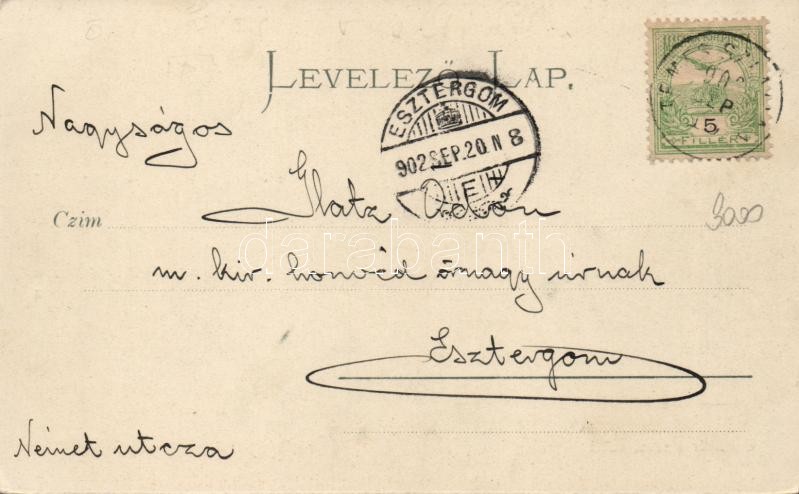 LEVELEZŐ LAP.
ESZTERGOM
902 SEP. 20. N 8
5
FILLÉR
Nagyságos
Glatz Ödön
Czim
m. kir. honvéd őrnagy úrnak
Esztergom
Német utcza
3000
darabanth